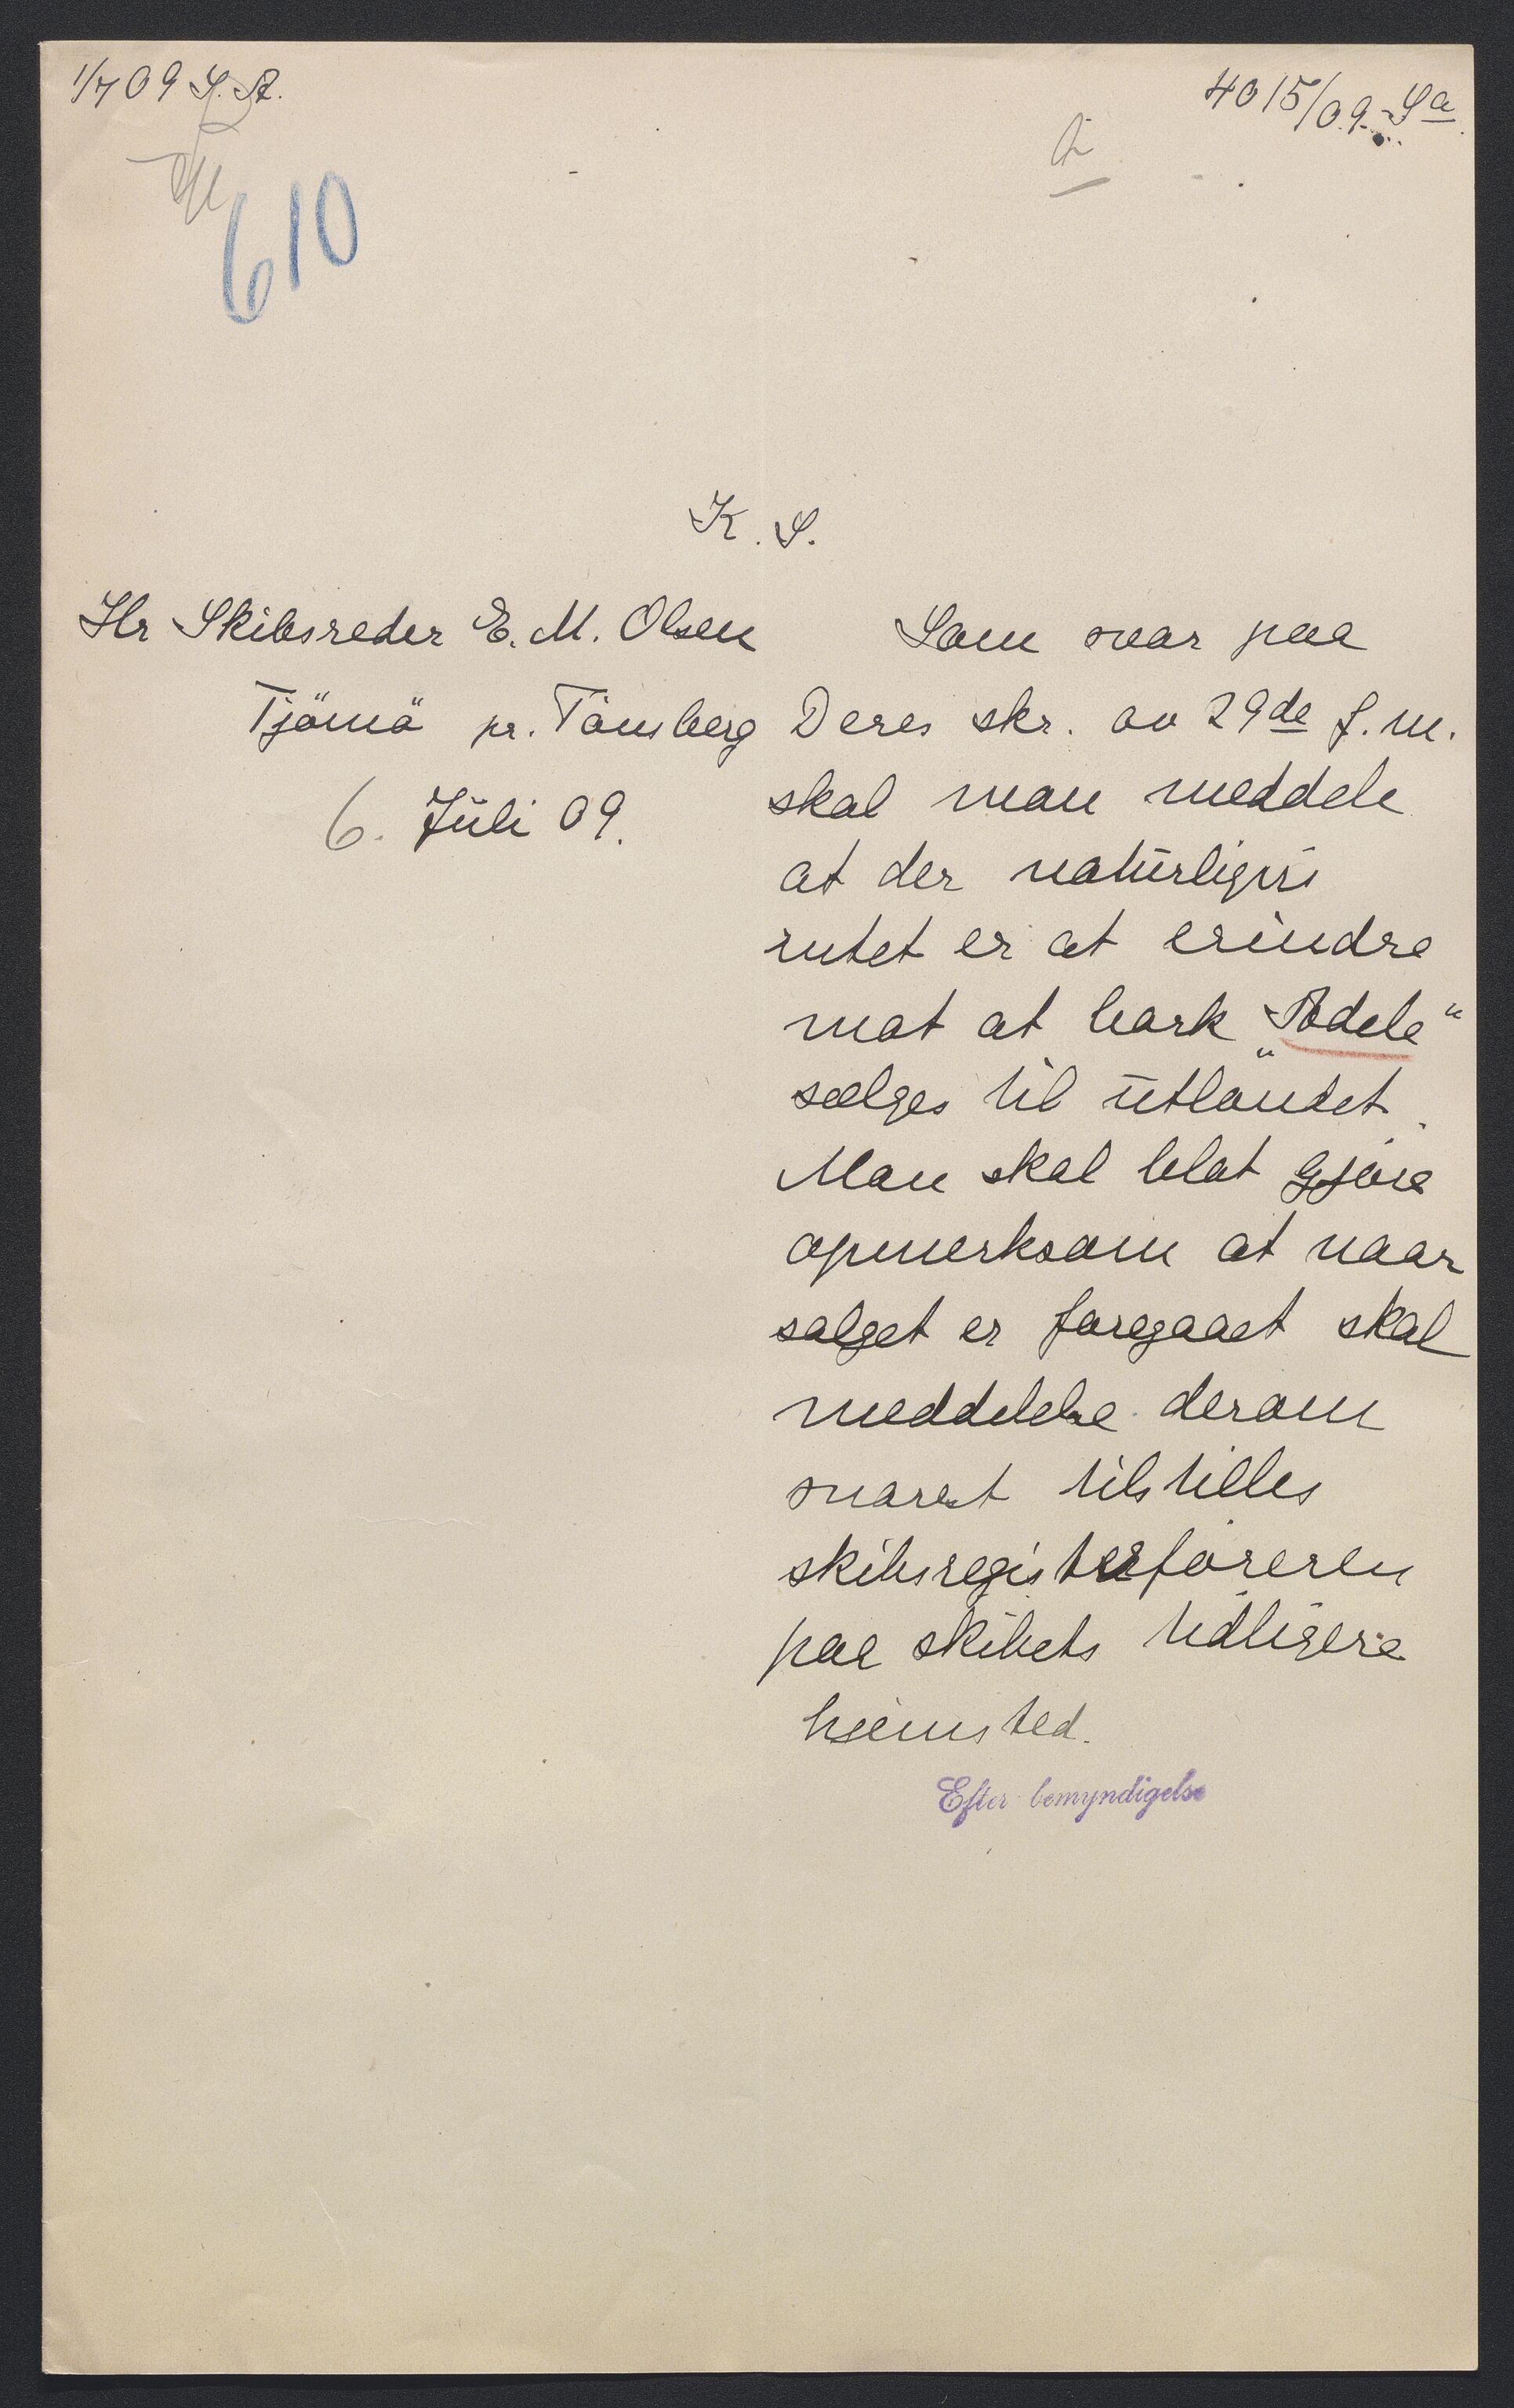 1/7 09 S. A.
4015/09. Sa.
610
K. S.
Hr Skibsreder E. M. Olsen
Tjömö pr. Tönsberg
6. Juli 09.
Som svar paa
Deres skr. av 29de f. m.
skal man meddele
at der naturligvis
intet er at erindre
mot at bark „Adele“
sælges til utlandet.
Man skal blot gjøre
opmerksom at naar
salget er foregaaet skal
meddelelse derom
snarest tilstilles
skibsregisterföreren
paa skibets tidligere
hjemsted.
Efter bemyndigelse